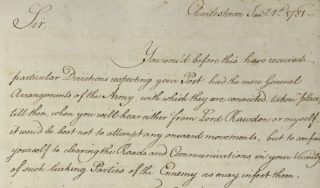 Charlestown Jany. 1st. 1781
Sir,
You wou'd before this have received
particular Directions respecting your Post had the more General
Arrangements of the Army with which they are connected taken place,
till then when you will hear either from Lord Rawdon or myself,
it wou'd be best not to attempt any onward movements, but to confine
yourself to clearing the Roads and Communications in your Vicinity
of such lurking Parties of the Ennemy as may infest them.